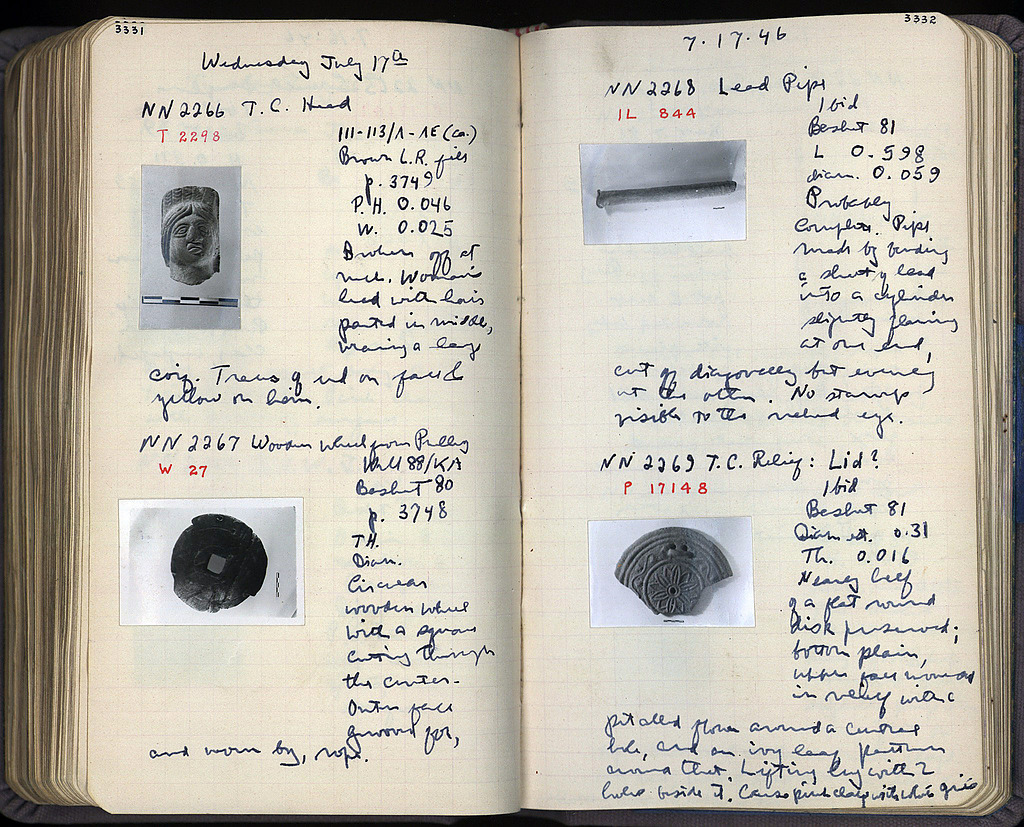 3331
Wednesday July 17th
NN 2266 T.C. Head
T 2298
III-113/Λ-ΛΕ (ca.)
Brown L.R. fill
p. 3749
P.H. 0.046
W. 0.025
Broken off at
neck. Woman's
head with hair
parted in middle,
wearing a large
coif. Traces of red on face &
yellow on hair.
NN 2267 Wooden wheel from Pulley
W 27
Well 88/ΚΛ
Basket 80
p. 3748
TH.
Diam.
Circular
wooden wheel
with a square
cutting through
the center.
Outer face
grooved for,
and worn by, rope.
3332
7.17.46
NN 2268 Lead Pipe
IL 844
Ibid
Basket 81
L 0.598
diam. 0.059
Probably
complete. Pipe
made by bending
a sheet of lead
into a cylinder
slightly flaring
at one end,
cut off diagonally but evenly
at the other. No stamps
visible to the naked eye.
NN 2269 T.C. Relief: Lid?
P 17148
Ibid
Basket 81
Diam est. 0.31
Th. 0.016
Nearly half
of a flat round
disk preserved;
bottom plain,
upper face
in relief with a
petalled flower around a central
hole, and an ivy leaf pattern
around that. Lifting lug with 2
holes beside it. Coarse pink clay with white grits